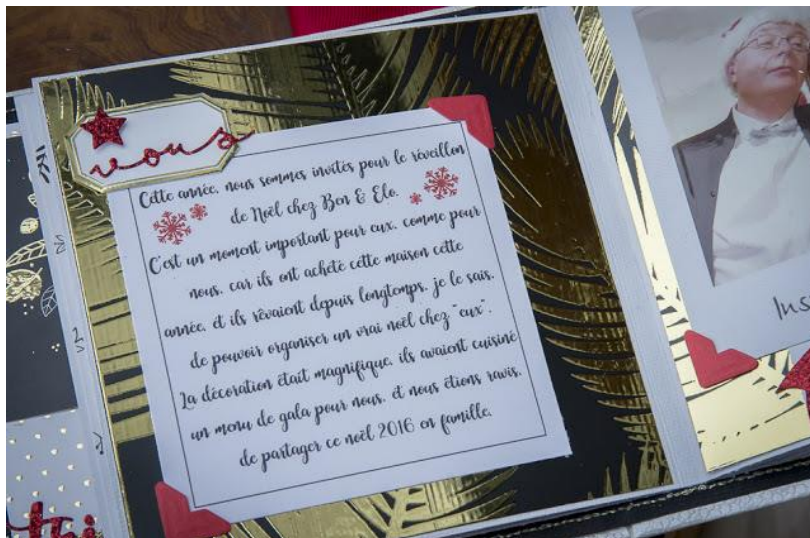 vous
Cette année, nous sommes invités pour le réveillon
de Noël chez Ben & Elo.
C'est un moment important pour eux, comme pour
nous, car ils ont acheté cette maison cette
année, et ils rêvaient depuis longtemps, je le sais,
de pouvoir organiser un vrai noël chez "eux".
La décoration était magnifique, ils avaient cuisiné
un menu de gala pour nous, et nous étions ravis,
de partager ce noël 2016 en famille.